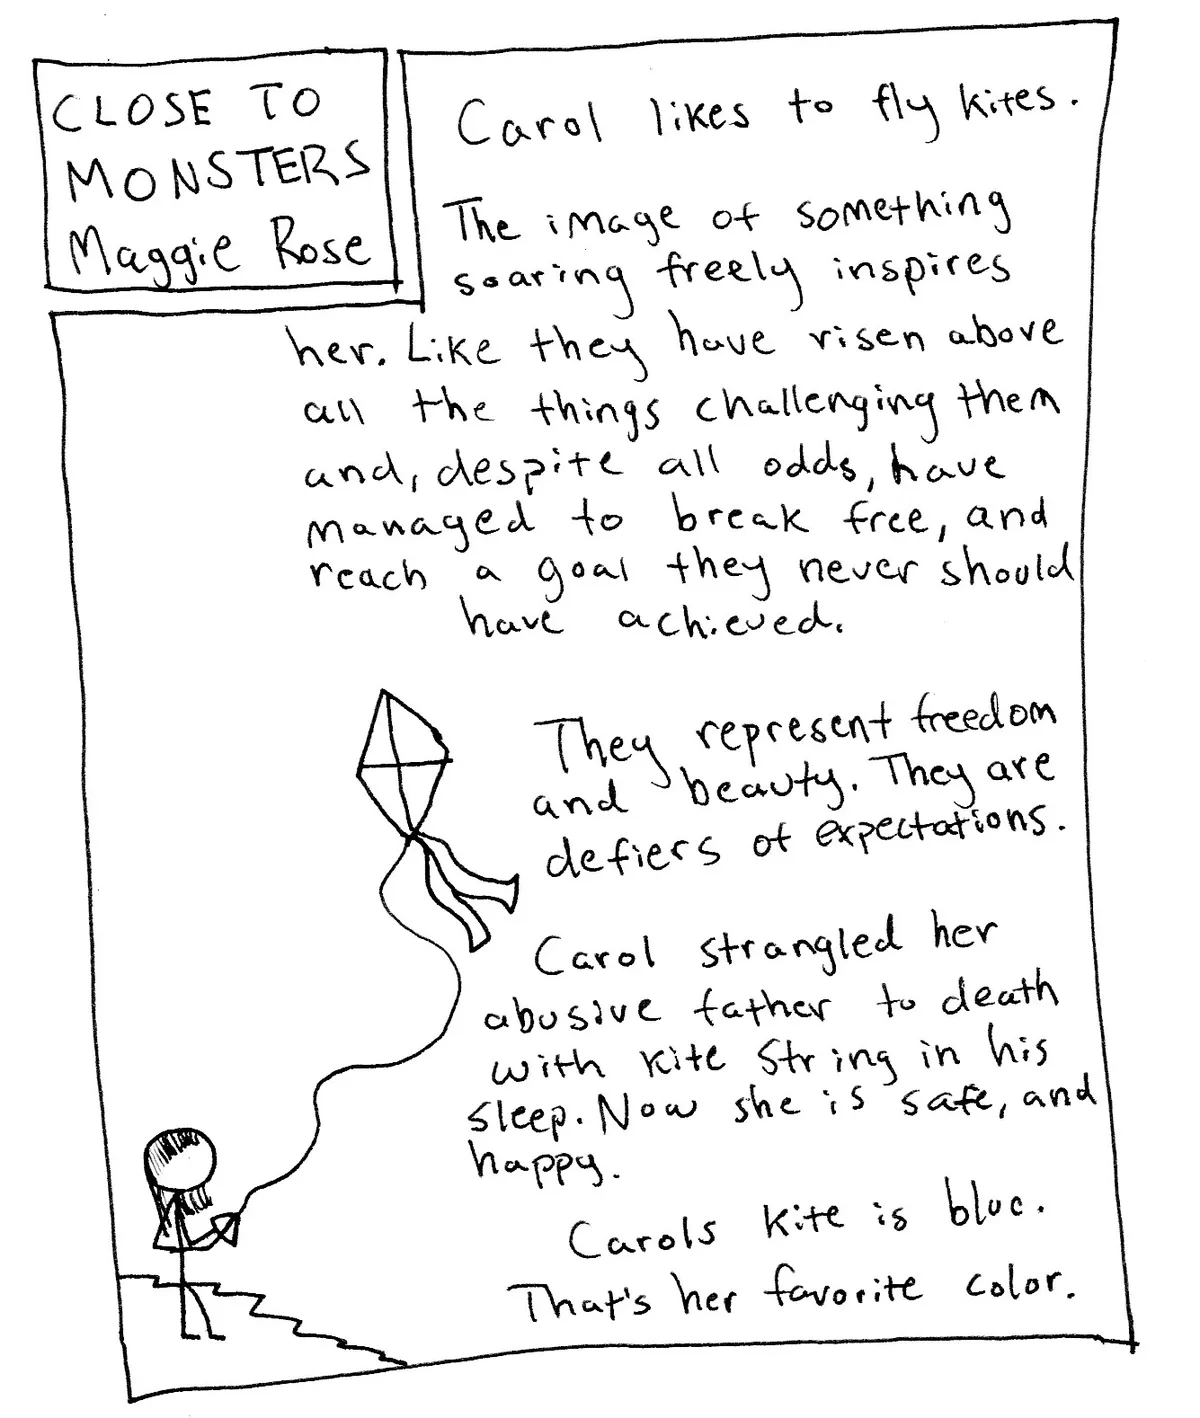 CLOSE TO
MONSTERS
Maggie Rose
Carol likes to fly kites.
The image of something
soaring freely inspires
her. Like they have risen above
all the things challenging them
and, despite all odds, have
managed to break free, and
reach a goal they never should
have achieved.
They represent freedom
and beauty. They are
defiers of expectations.
Carol strangled her
abusive father to death
with kite string in his
sleep. Now she is safe, and
happy.
Carols kite is blue.
That's her favorite color.